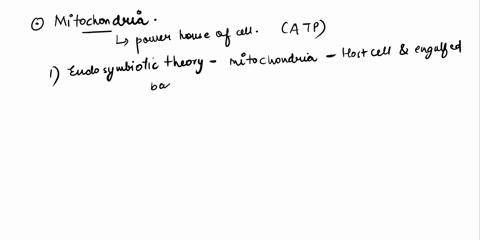 ⊙ Mitochondria.
↳ power house of cell. (ATP)
1) Endosymbiotic theory - mitochondria - Host cell & engulfed
ba